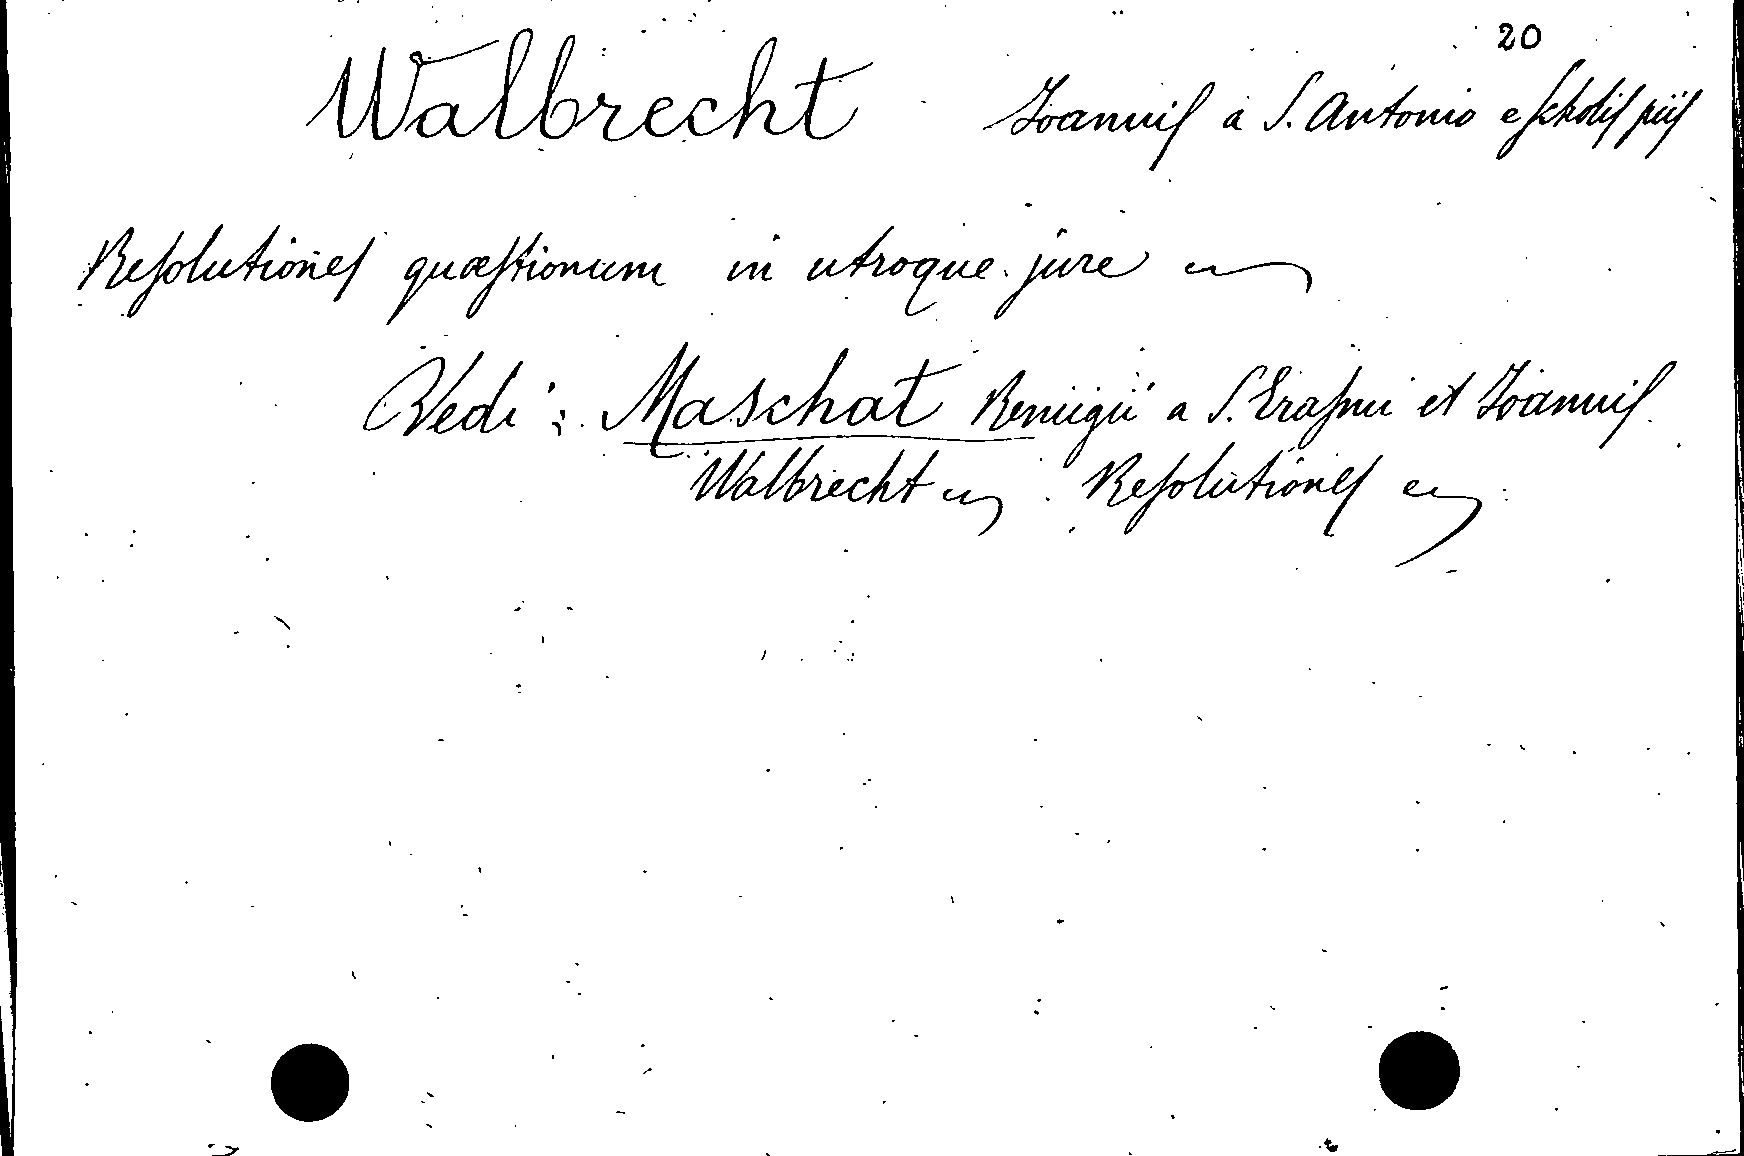 20
Walbrecht Joannis a S. Antonio e scholis piis
Resolutiones quæstionum in utroque jure
Vedi: Maschat Remigii a S. Erasmi et Joannis
Walbrecht Resolutiones